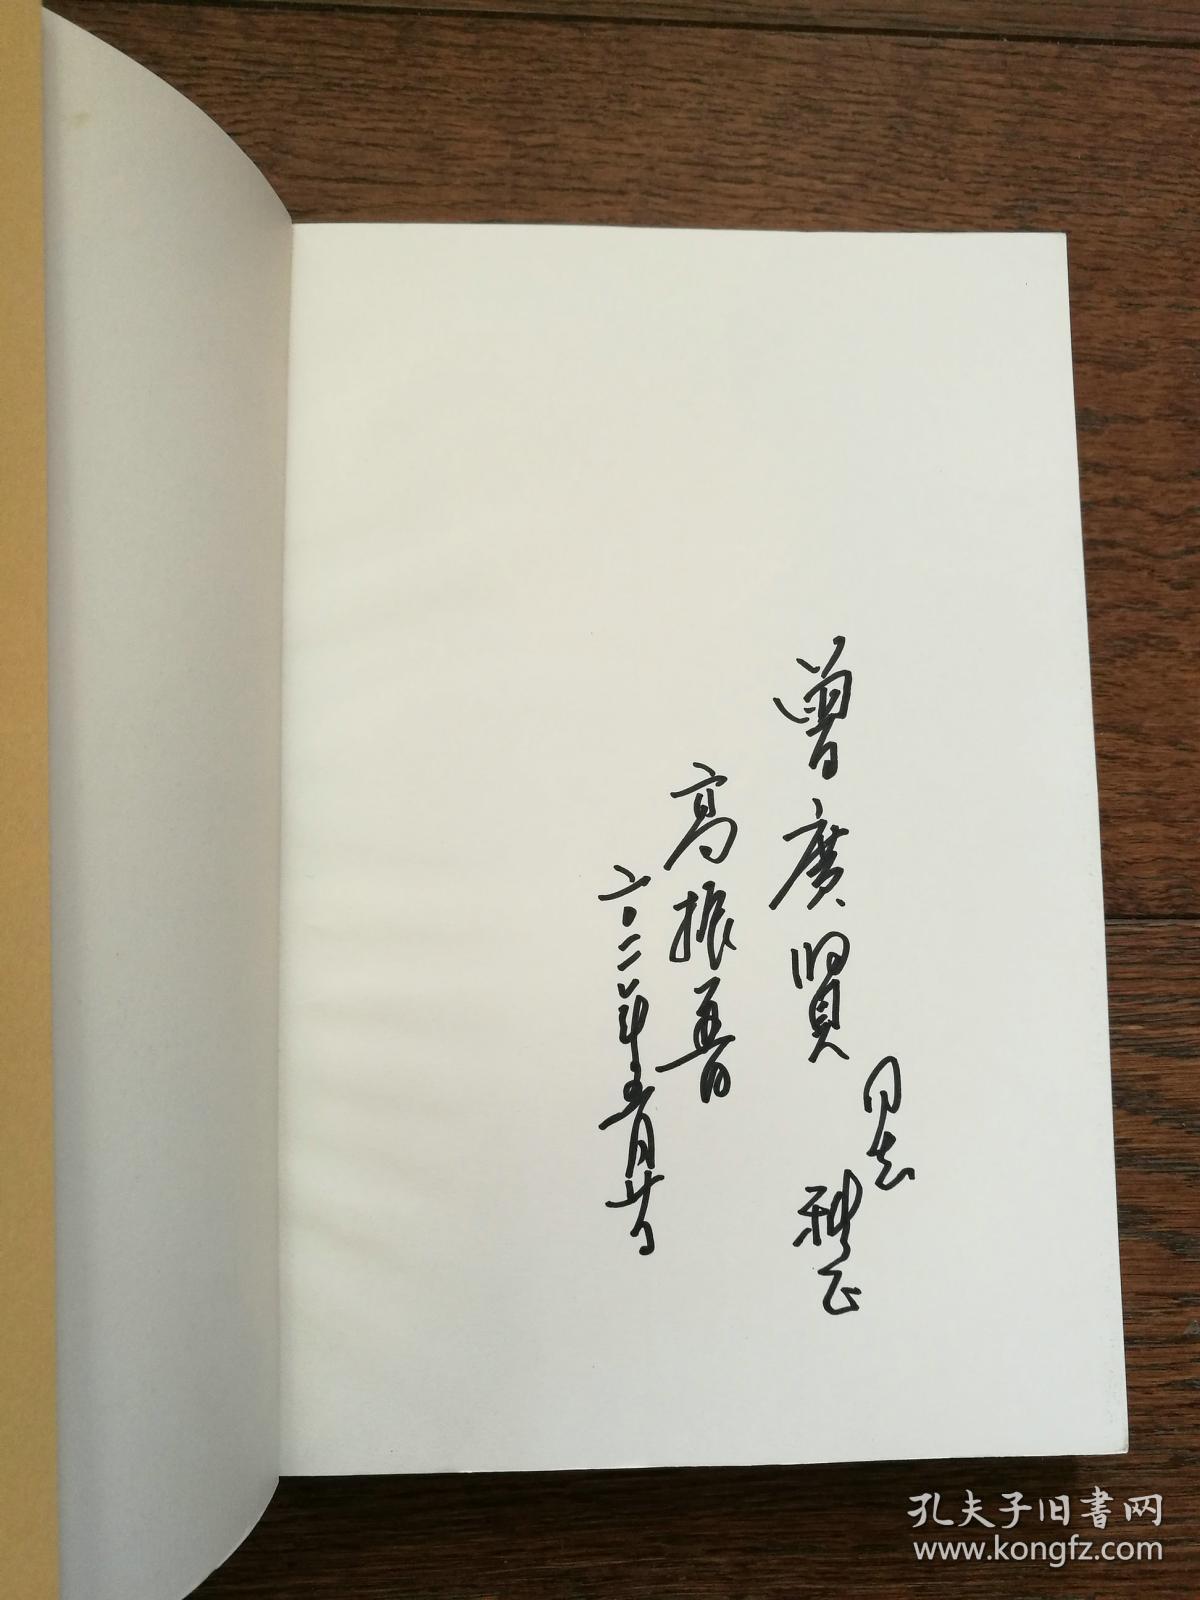 曾廣賢
同志
雅正
高振普
二〇一二年五月廿日
孔夫子旧书网
www.kongfz.com